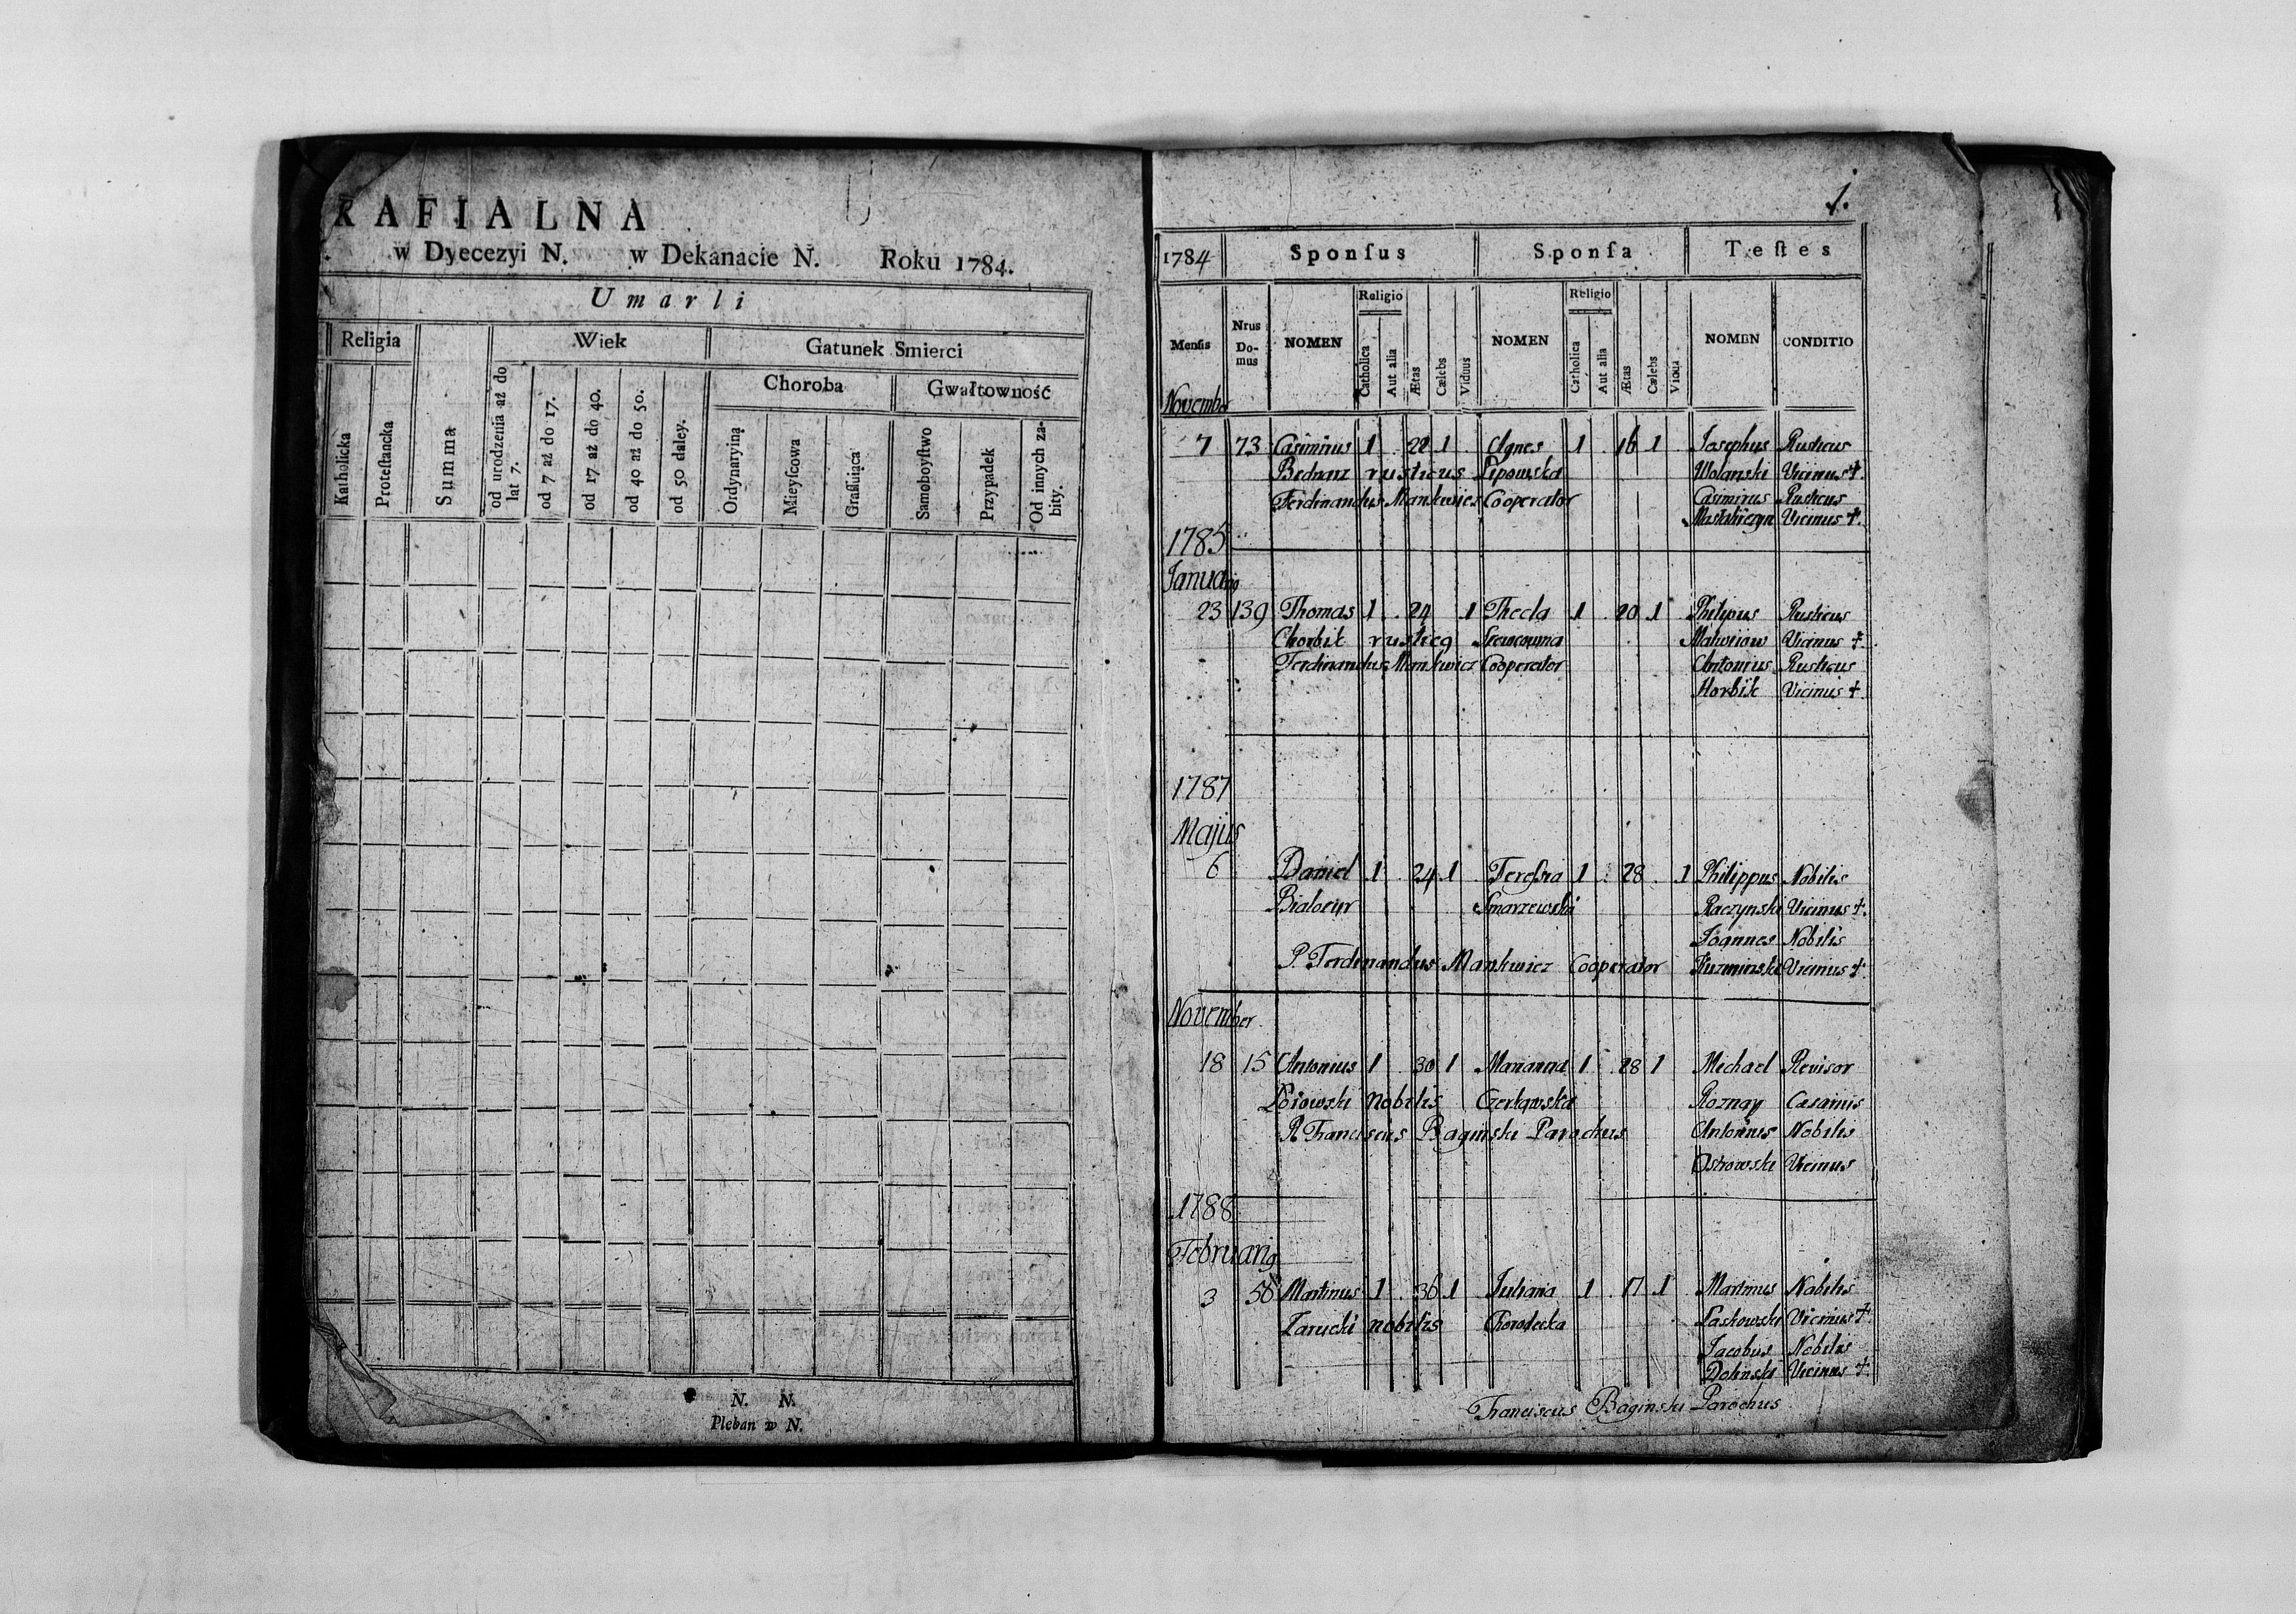 RAFIALNA
w Dyecezyi N. w Dekanacie N. Roku 1784.
Umarli
Religia Wiek Gatunek Smierci
Choroba Gwałtowność
Katholicka
Proteſtancka
Summa
od urodzenia aż do lat 7.
od 7 aż do 17.
od 17 aż do 40.
od 40 aż do 50.
od 50 daley.
Ordynaryiną
Mieyſcowa
Graſſuiąca
Samoboyſtwo
Przypadek
Od innych zabity.
N. N.
Pleban w N.
1.
1784 Sponſus Sponſa Teſtes
Religio Religio
Menſis Nrus Domus NOMEN Catholica Aut alia Ætas Cælebs Viduus NOMEN Catholica Aut alia Ætas Cælebs Vidua NOMEN CONDITIO
November
7 73 Casimirus 1 22 1 Agnes 1 16 1 Josephus Rusticus
Bednarz rusticus Lipowska Wolanski Vicinus +.
Ferdinandus Mankwicz Cooperator Casimirus Rusticus
Vicinus +.
1785
Januarig
23 139 Thomas 1 24 1 Thecla 1 20 1 Philipus Rusticus
Chorbik rusticg Vicinus +.
Ferdinandus Mankwicz Cooperator Antonius Rusticus
Horbik Vicinus +.
1787
Majus
6 Daniel 1 24 1 Tereſsia 1 28 1 Philippus Nobilis
Smarzewska Raczynski Vicinus +.
Joannes Nobilis
P. Ferdinandus Mankwicz Cooperator Vicinus +.
November
18 15 Antonius 1 30 1 Marianna 1 28 1 Michael Revisor
nobilis Roznay
R. Franciscus Baginski Parochus Antonius Nobilis
Ostrowski Vicinus
1788
Februarig
3 56 Martinus 1 36 1 Juliana 1 17 1 Martinus Nobilis
Zarucki nobilis Chorodecka Laskowski Vicinus +
Jacobus Nobilis
Dolinski Vicinus +.
Franciscus Baginski Parochus